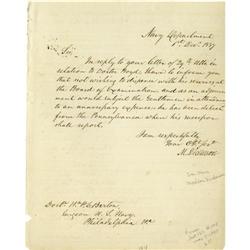 Navy Department
1st Decr. 1837
Sir,
In reply to your letter of 29th ulto in
relation to Doctor Boyd, I have to inform you
that not wishing to dispense with his services at
the Board of Examination and as an
would subject the Gentlemen in attendance
to an unnecessary expense he has been detached
from the Pennsylvania when his successor
shall report.
I am respectfully
Your Obt Svt
M. Dickerson
Doctr. W. P. C. Barton
Surgeon U. S. Navy
Philadelphia